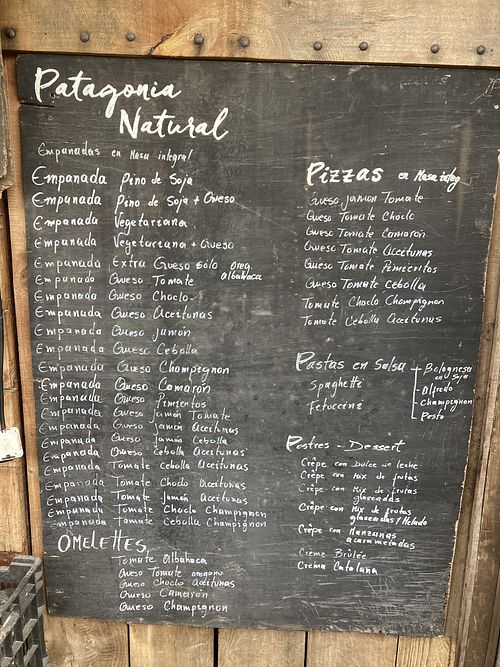 Patagonia
Natural
Empanadas en Masa integral
Empanada Pino de Soja
Empanada Pino de Soja + Queso
Empanada Vegetariana
Empanada Vegetariana + Queso
Empanada Extra Queso sólo oreg.
albahaca
Empanada Queso Tomate
Empanada Queso Choclo
Empanada Queso Aceitunas
Empanada Queso Jamón
Empanada Queso Cebolla
Empanada Queso Champignon
Empanada Queso Camarón
Empanada Queso Pimientos
Empanada Queso Jamón Tomate
Empanada Queso Jamón Aceitunas
Empanada Queso Jamón Cebolla
Empanada Queso Cebolla Aceitunas
Empanada Tomate Cebolla Aceitunas
Empanada Tomate Choclo Aceitunas
Empanada Tomate Jamón Aceitunas
Empanada Tomate Choclo Champignon
Empanada Tomate Cebolla Champignon
OMELETTES
Tomate Albahaca
Queso Tomate oregano
Queso Choclo Aceitunas
Queso Camarón
Queso Champignon
Pizzas en Masa integ
Queso Jamón Tomate
Queso Tomate Choclo
Queso Tomate Camarón
Queso Tomate Aceitunas
Queso Tomate Pimientos
Queso Tomate Cebolla
Tomate Choclo Champignon
Tomate Cebolla Aceitunas
Pastas en Salsa
Spaghetti
Fetuccini
Bolognesa
en Soja
Alfredo
Champignon
Pesto
Postres - Dessert
Crêpe con Dulce de leche
Crêpe con Mix de frutas
Crêpe con Mix de frutas
glaseadas
Crêpe con Mix de frutas
glaseadas / Helado
Crêpe con Manzanas
acarameladas
Creme Brûlée
Crema Catalana